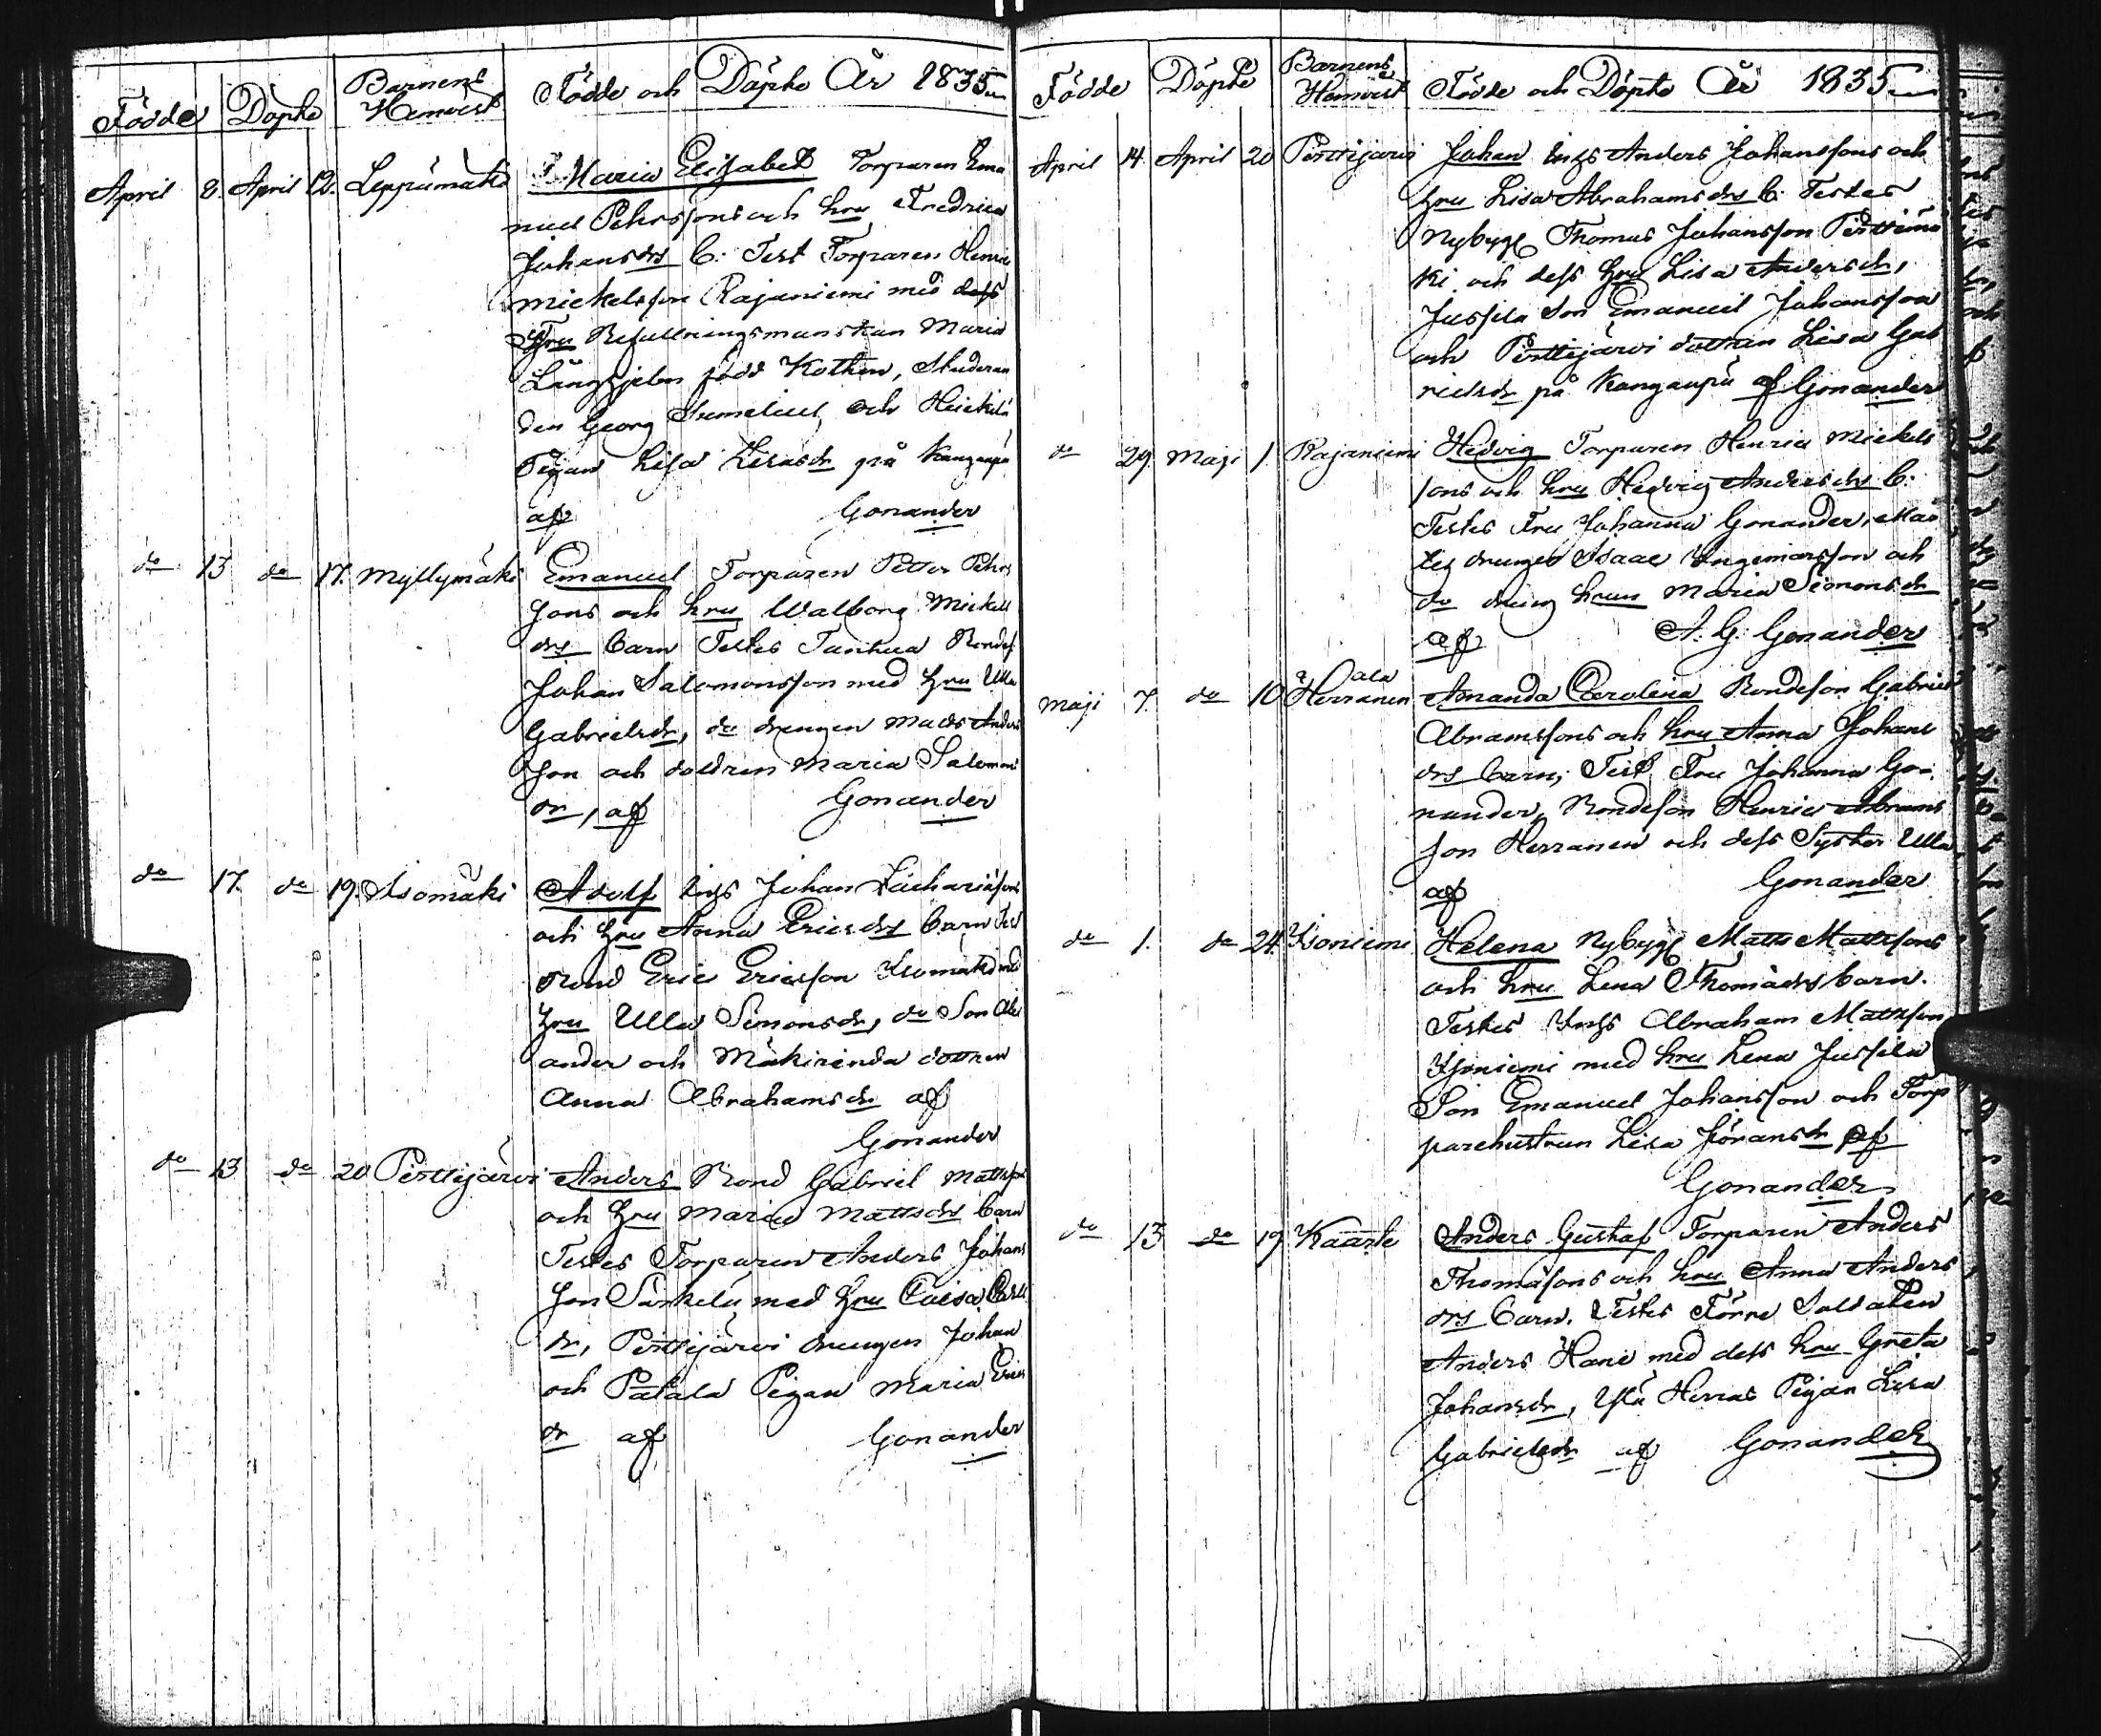 Födde Döpte Barnens Hemvist Födde och Döpte År 1835
April 8. April 12. Leppümäki Maria Elisabet Torparen Ema
nuel Pehrssons och hru Fredrica
Johansdrs b: Test Torparen Henric
Mickelsson Rajaniemi med dess
Hru Befallningsmanskan Maria
Långhjelm född Kothen, Studeran
den Georg Sumelius och Heickilä
Pigan Lisa Lisasdr på Kangaspä
af Gonander
do 13 do 17. Myllymäki Emanuel Torparen Petter Pehrs
sons och hru Walborg Mickels
drs barn Testes Tanhua Bondes
Johan Salomonsson med hru Ulla
Gabrielsdr, do drengen Mats Anders
son och dottren Maria Salomons
dr, af Gonander
do 17. do 19. Isomäki Adolf Inhs Johan Zachariäsons
och hru Anna Ericsdrs barn Test
Bond Eric Ericsson Isomäki med
hru Ulla Simonsdr, do Son Alex
ander och Mäkirinda dottren
Anna Abrahamsdr af
Gonander
do 13 do 20 Perttijärvi Anders Bond Gabriel Mattsson
och hru Maria Mattsdrs barn
Testes Torparen Anders Johans
son Särkelä med hru Caisa Carls
dr, Perttijärvi drengen Johan
och Patala Pigan Maria Erics
dr af Gonander
Födde Döpte Barnens Hemvist Födde och Döpte År 1835
April 14. April 20 Perttijärvi Johan Inhs Anders Johanssons och
hru Lisa Abrahamsdrs b: Testes
Nybygg Thomas Johansson Perttimä
ki och dess hru Lisa Andersdr,
Jussila Son Emanuel Johansson
och Perttijärvi dottren Lisa Gab
rielsdr på Kangaspä af Gonander
do 29. Maji 1. Rajaniemi Hedvig Torparen Henric Mickels
sons och hru Hedvig Andersdrs b:
Testes Fru Johanna Gonander, Mäs
tes drengen Isaac Ingemarsson och
do dreng hrun Maria Simonsdr
af A. G. Gonander
Maji 7. do 10 Ala Herranen Amanda Carolina Bondeson Gabriel
Abramssons och hru Anna Johans
drs barn; Test Fru Johanna Go
nander, Bondeson Henric Abrams
son Herranen och dess Syster Ulla
af Gonander
do 1. do 24. Isoniemi Helena Nybygg Matts Mattssons
och hru Lena Thomädrs barn.
Testes Inhs Abraham Mattsson
Isoniemi med hru Lena Jussila
Son Emanuel Johansson och Torp
parehustrun Lisa Jöransdr af
Gonander
do 13 do 19 Kaarle Anders Gustaf Torparen Anders
Thomäsons och hru Anna Anders
drs barn. Testes Förre Soldaten
Anders Hane med dess hru Greta
Johansdr, Ylä Herras Pigan Lisa
Gabrielsdr af Gonander